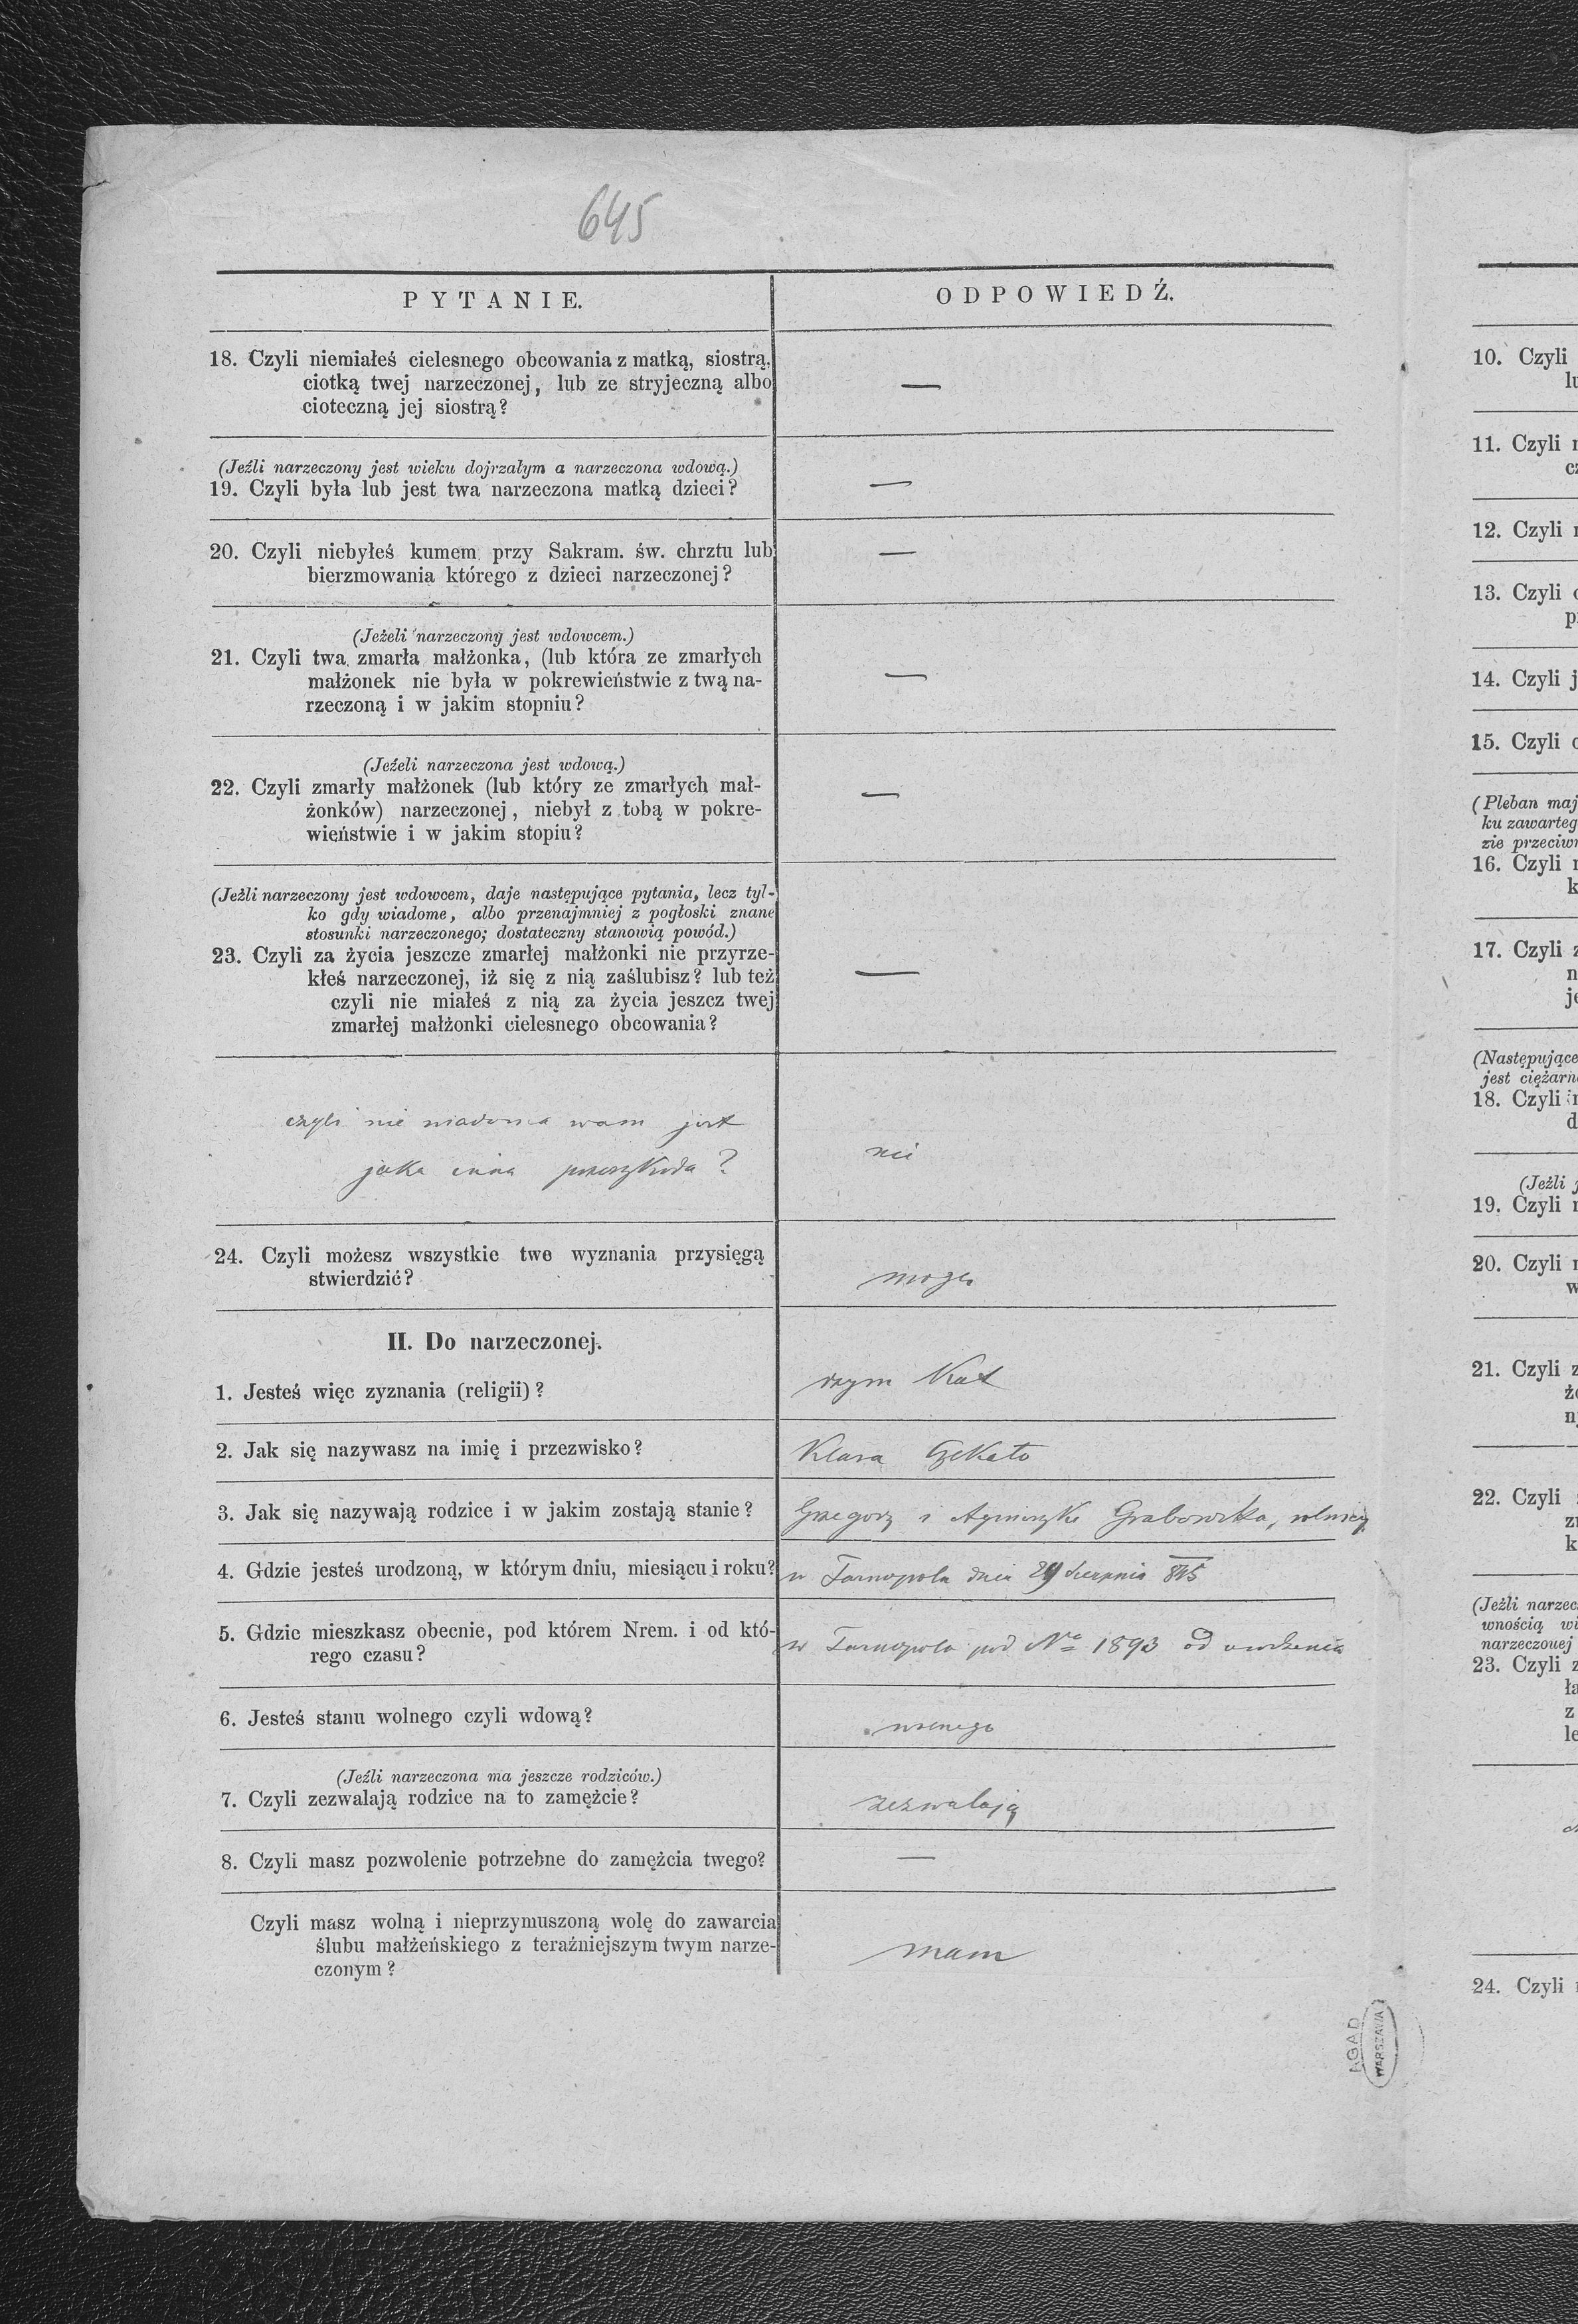 645
PYTANIE.
ODPOWIEDŹ.
18. Czyli niemiałeś cielesnego obcowania z matką, siostrą,
ciotką twej narzeczonej, lub ze stryjeczną albo
cioteczną jej siostrą?
—
(Jeźli narzeczony jest wieku dojrzałym a narzeczona wdową.)
19. Czyli była lub jest twa narzeczona matką dzieci?
—
20. Czyli niebyłeś kumem przy Sakram. św. chrztu lub
bierzmowania którego z dzieci narzeczonej?
—
(Jeżeli narzeczony jest wdowcem.)
21. Czyli twa zmarła małżonka, (lub która ze zmarłych
małżonek nie była w pokrewieństwie z twą na-
rzeczoną i w jakim stopniu?
—
(Jeżeli narzeczona jest wdową.)
22. Czyli zmarły małżonek (lub który ze zmarłych mał-
żonków) narzeczonej, niebył z tobą w pokre-
wieństwie i w jakim stopiu?
—
(Jeżli narzeczony jest wdowcem, daje następujące pytania, lecz tyl-
ko gdy wiadome, albo przenajmniej z pogłoski znane
stosunki narzeczonego; dostateczny stanowią powód.)
23. Czyli za życia jeszcze zmarłej małżonki nie przyrze-
kłeś narzeczonej, iż się z nią zaślubisz? lub też
czyli nie miałeś z nią za życia jeszcz twej
zmarłej małżonki cielesnego obcowania?
—
czyli nie wiadoma wam jest
jaka inna przeszkoda?
nie
24. Czyli możesz wszystkie twe wyznania przysięgą
stwierdzić?
mogę
II. Do narzeczonej.
1. Jesteś więc zyznania (religii)?
rzym Kat
2. Jak się nazywasz na imię i przezwisko?
Klara
3. Jak się nazywają rodzice i w jakim zostają stanie?
Grzegorz i Agnieszka Grabowska,
4. Gdzie jesteś urodzoną, w którym dniu, miesiącu i roku?
w Tarnopolu dnia Sierpnia 845
5. Gdzie mieszkasz obecnie, pod którem Nrem. i od któ-
rego czasu?
w Tarnopolu pod No 1893 od urodzenia
6. Jesteś stanu wolnego czyli wdową?
wolnego
(Jeźli narzeczona ma jeszcze rodziców.)
7. Czyli zezwalają rodzice na to zamężcie?
zezwalają
8. Czyli masz pozwolenie potrzebne do zamężcia twego?
—
Czyli masz wolną i nieprzymuszoną wolę do zawarcia
ślubu małżeńskiego z teraźniejszym twym narze-
czonym?
mam
10. Czyli
11. Czyli
12. Czyli
13. Czyli
14. Czyli
15. Czyli
(Pleban maj
ku zawarteg
zie przeciw
16. Czyli
17. Czyli
(Następujące
jest ciężarn
18. Czyli
(Jeźli
19. Czyli
20. Czyli
21. Czyli
22. Czyli
(Jeźli narzec
wnością wi
narzeczonej
23. Czyli
24. Czyli
AGAD
WARSZAWA